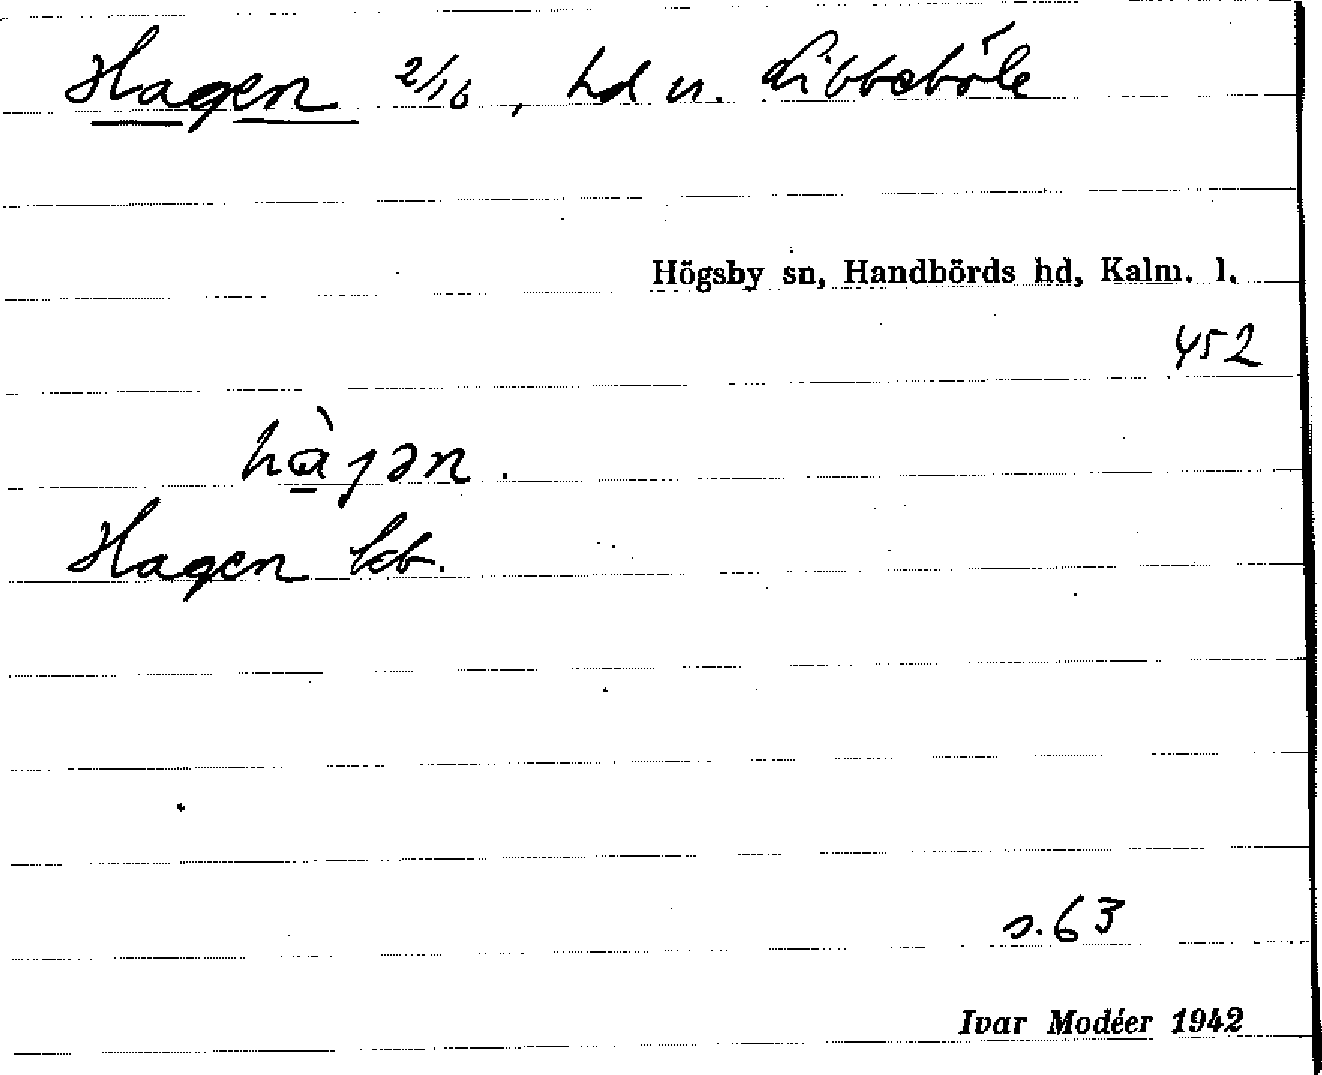 Hagen 2/16, hd u. Libbeböle
Högsby sn, Handbörds hd, Kalm. l.
452
hàȷən.
Hagen kb.
s. 63
Ivar Modéer 1942